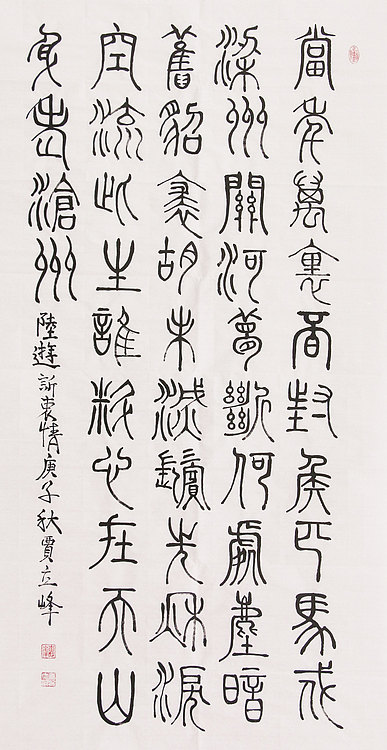 當年萬裏覓封侯匹馬戍
梁州關河夢斷何處塵暗
舊貂裘胡未滅鬢先秋淚
空流此生誰料心在天山
身老滄州
陸遊訴衷情庚子秋賈立峰